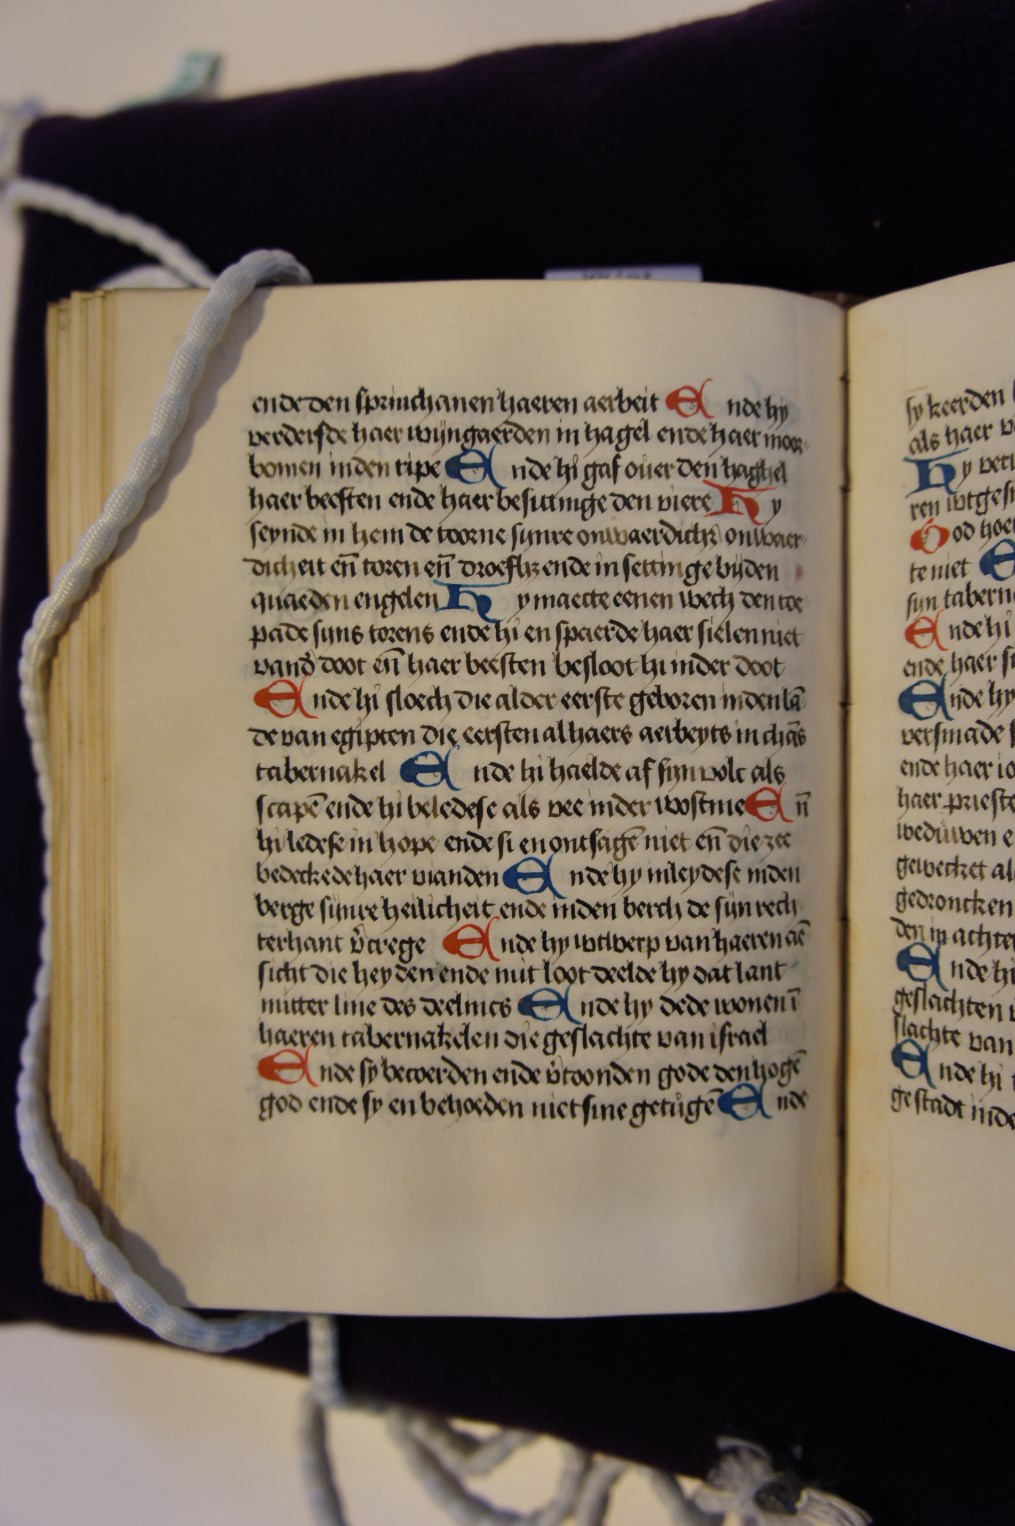 ende den sprinchanen haeren aerbeit Ende hy
verderfde haer wijngaerden in hagel ende haer moer
bomen inden ripe Ende hi gaf ouer den haghel
haer beesten ende haer besittinge den viere Hy
seynde in hem de toorne sijnre onwaerdich onwaer
dicheit eñ toren eñ droefh ende insettinge biden
quaeden engelen Hy maecte eenen wech den toe
pade sijns torens ende hi en spaerde haer sielen niet
vand doot eñ haer beesten besloot hi inder doot
Ende hi sloech die alder eerste geboren inden lā
de van egipten die eersten al haers aerbeyts in chās
tabernakel Ende hi haelde af sijn volc als
scapē ende hi beledese als vee inder wostine Eñ
hi ledese in hope ende si en ontsagē niet eñ die zee
bedeckede haer vianden Ende hy inleydese inden
berge sijnre heilicheit ende inden berch de sijn rech
terhant v̓crege Ende hy wtwerp van haeren aē
sicht die heyden ende mit loot deelde hy dat lant
mitter linie des deelnies Ende hy dede wonen ī
haeren tabernakelen die geslachte van israel
Ende sy becoerden ende v̓toonden gode den hogē
god ende sy en behoeden niet sine getugē Ende
sy keerden
als haer
Hy
ren wtges
God hoe
te niet
sijn tabern
Ende hi
ende haer
Ende hy
versmade
ende haer
haer prieste
weduwen e
gewecket al
gedroncken
den in achte
Ende hi
geslachten
slachte van
Ende hi
gestadt inde